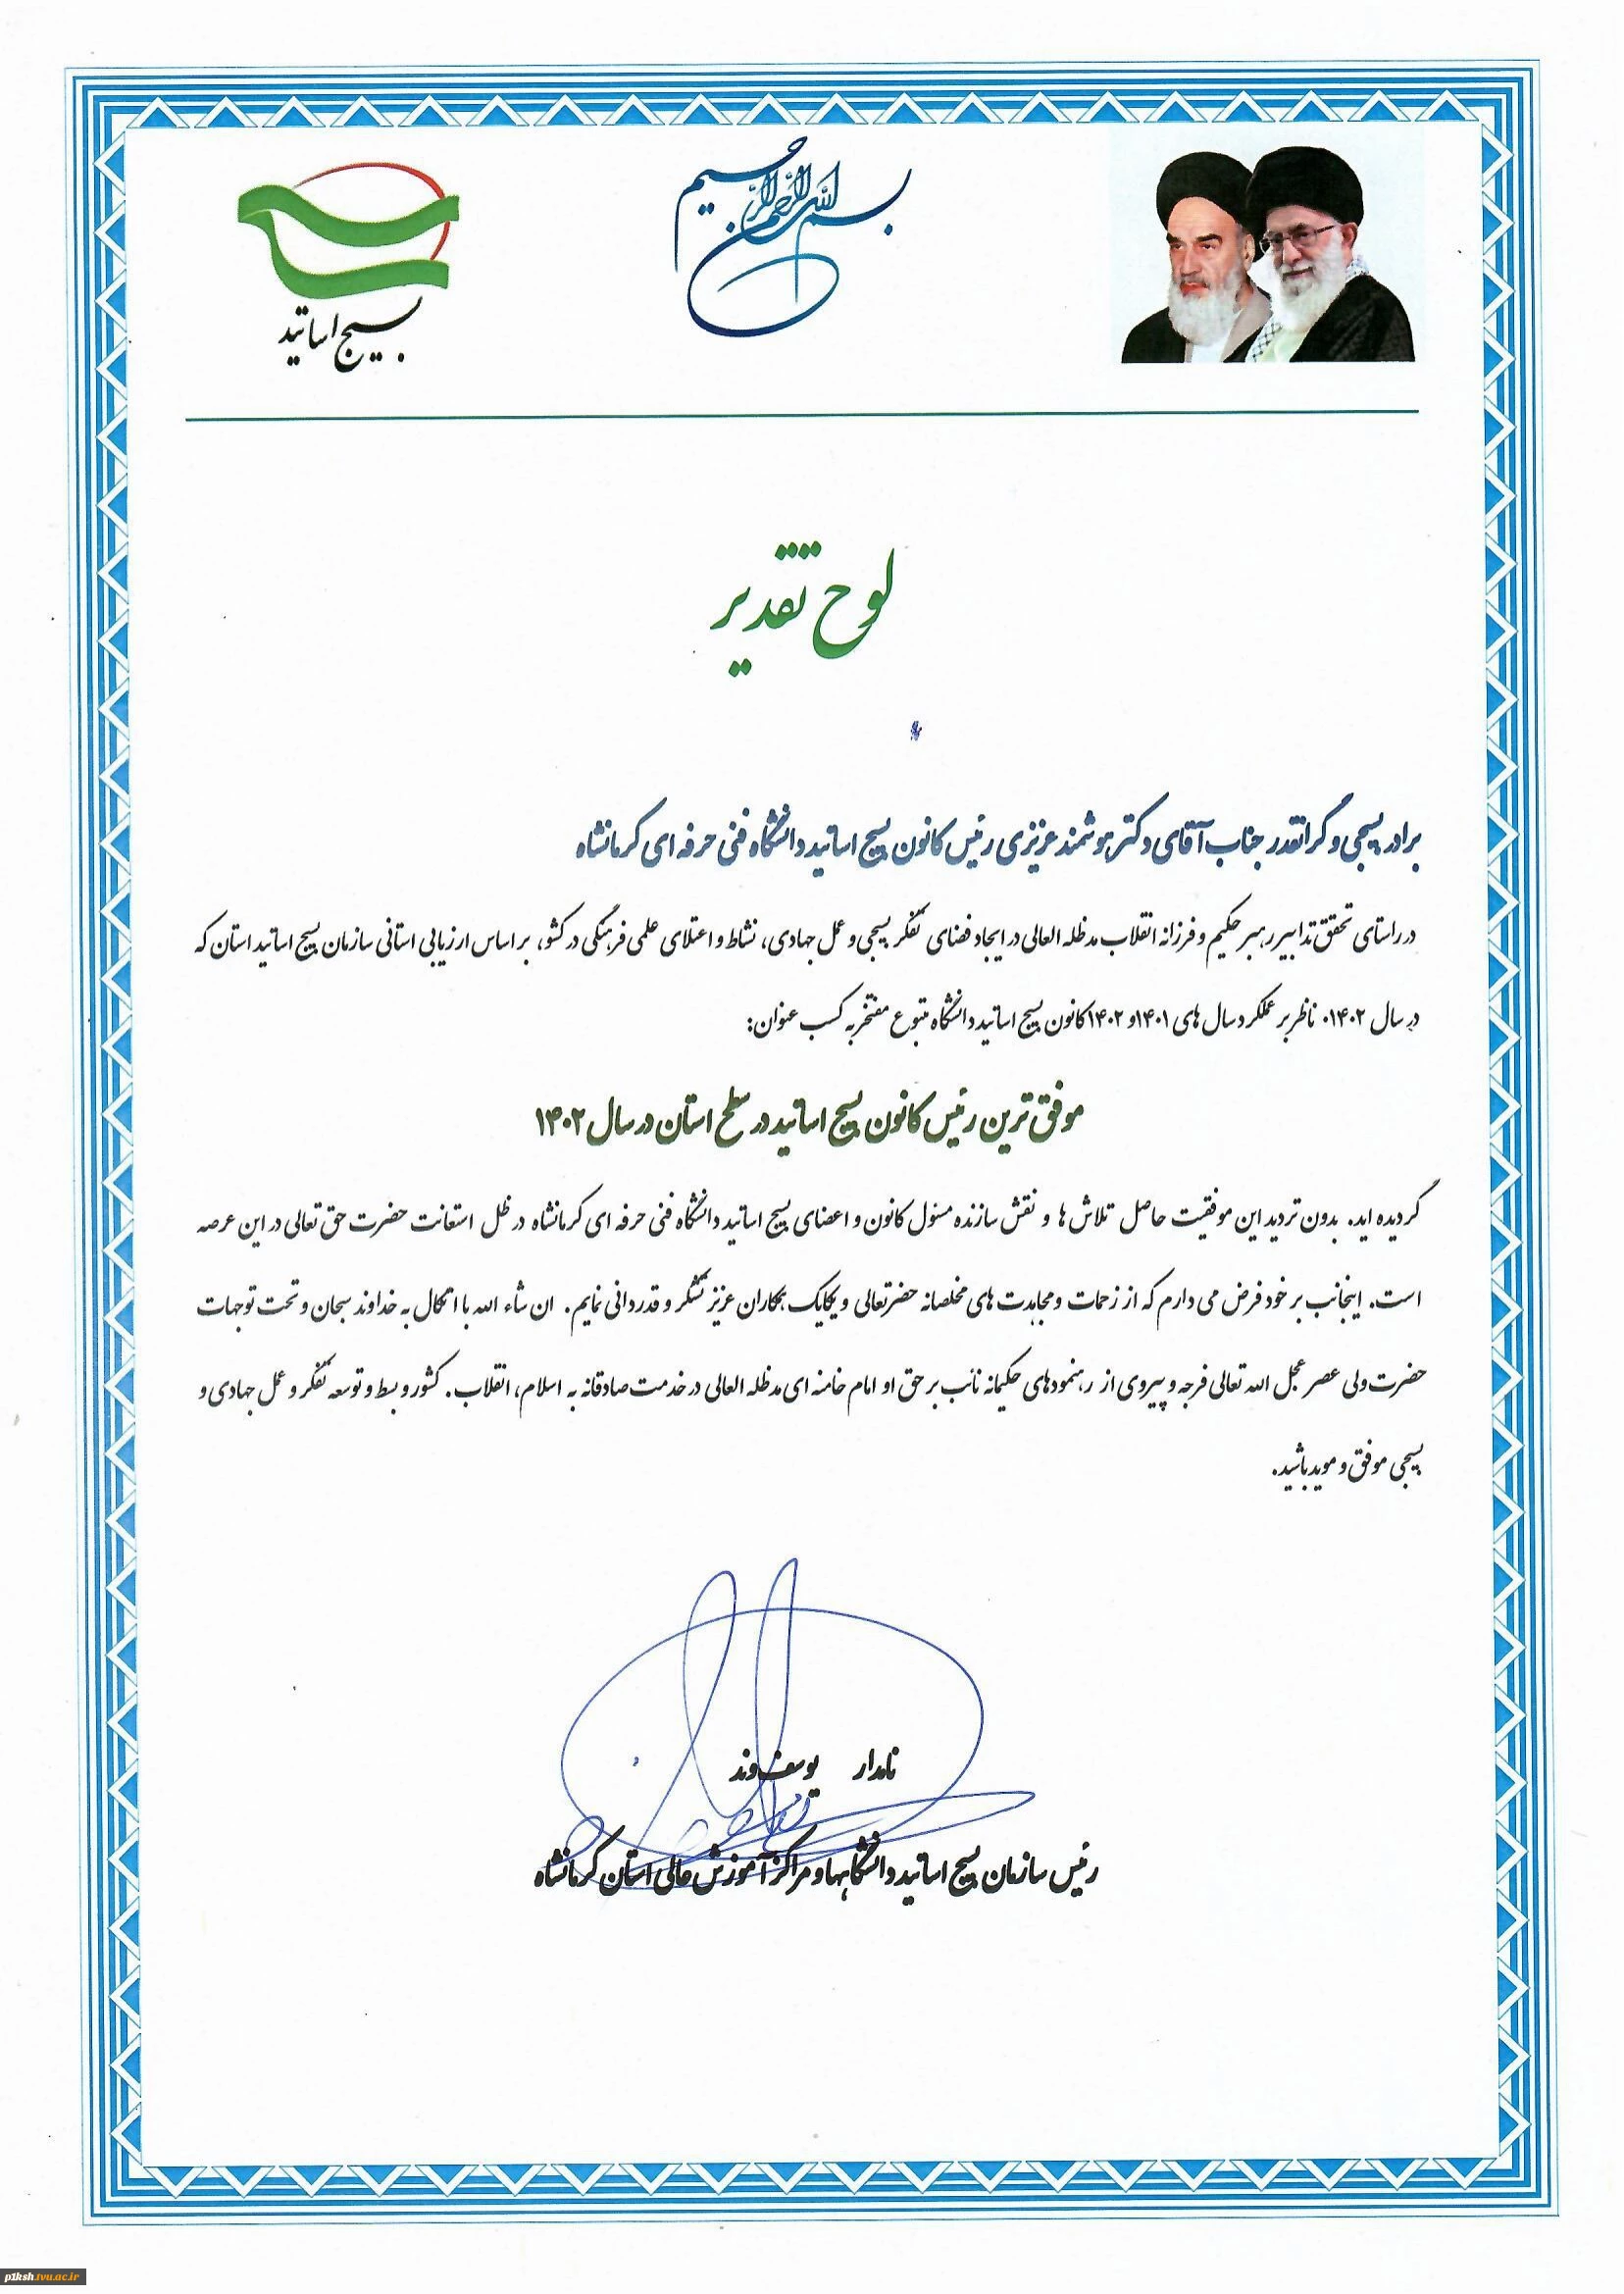 بسم الله الرحمن الرحیم
بسیج اساتید
لوح تقدیر
برادر بسیجی و گرانقدر جناب آقای دکتر هوشمند عزیزی رئیس کانون بسیج اساتید دانشگاه فنی حرفه ای کرمانشاه
در راستای تحقق تدابیر رهبر حکیم و فرزانه انقلاب مدظله العالی در ایجاد فضای تفکر بسیجی و عمل جهادی، نشاط و اعتلای علمی فرهنگی در کشور، بر اساس ارزیابی استانی سازمان بسیج اساتید استان که
در سال ۱۴۰۲، ناظر بر عملکرد سال های ۱۴۰۱ و ۱۴۰۲ کانون بسیج اساتید دانشگاه متبوع مفتخر به کسب عنوان:
موفق ترین رئیس کانون بسیج اساتید در سطح استان در سال ۱۴۰۲
گردیده اید. بدون تردید این موفقیت حاصل تلاش ها و نقش سازنده مسئول کانون و اعضای بسیج اساتید دانشگاه فنی حرفه ای کرمانشاه در ظل استعانت حضرت حق تعالی در این عرصه
است. اینجانب بر خود فرض می دارم که از زحمات و مجاهدت های مخلصانه حضرتعالی و یکایک همکاران عزیز تشکر و قدردانی نمایم. ان شاء الله با اتکال به خداوند سبحان و تحت توجهات
حضرت ولی عصر عجل الله تعالی فرجه و پیروی از رهنمودهای حکیمانه نائب بر حق او امام خامنه ای مدظله العالی در خدمت صادقانه به اسلام، انقلاب. کشور و بسط و توسعه تفکر و عمل جهادی و
بسیجی موفق و موید باشید.
نامدار یوسف وند
رئیس سازمان بسیج اساتید دانشگاهها و مراکز آموزش عالی استان کرمانشاه
p1ksh.tvu.ac.ir